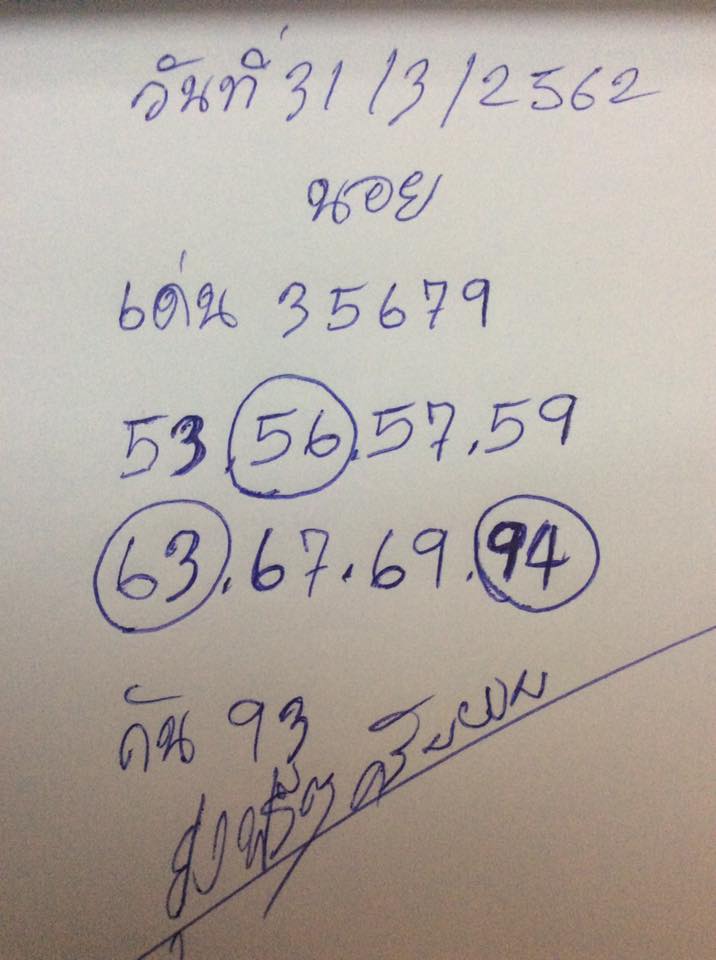 วันที่ 31/3/2562
นอย
เด่น 35679
53.56.57.59
63.67.69.94
กัน 93